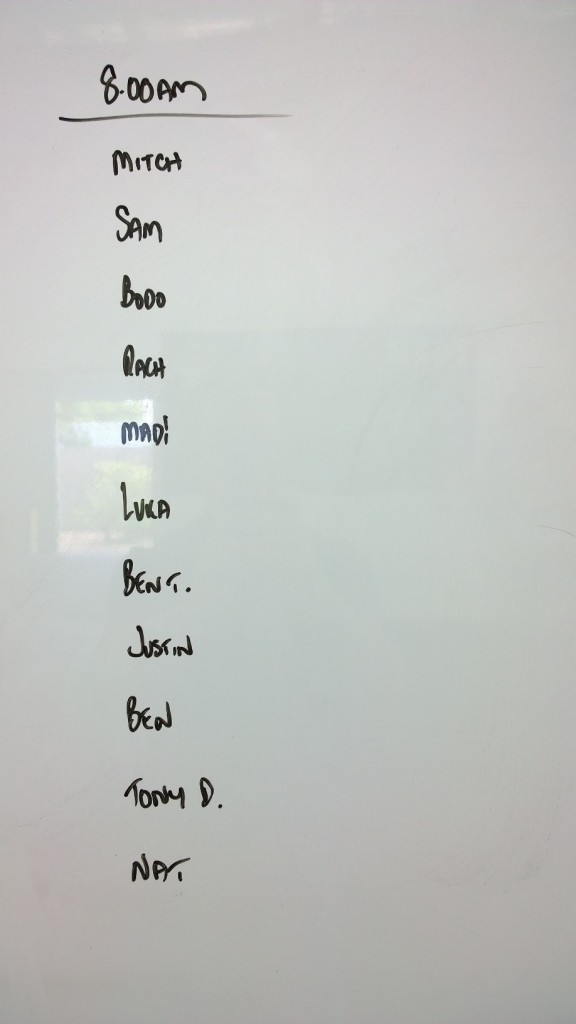 8.00AM
MITCH
SAM
BODO
RACH
MADi
LUKA
BEN T.
JUSTIN
BEN
TONY D.
NAT